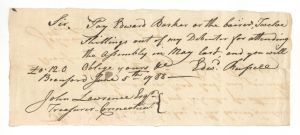 Sir. Pay Edward Barker or the bairer, Twelve
Shillings out of my Debenter for attending
the Assembly in May last and you will
Oblige yours &c
£0:12:0 Edwd. Russell
Branford July 5th 1788
John Lawrence Esqr
Treasurer Connecticut